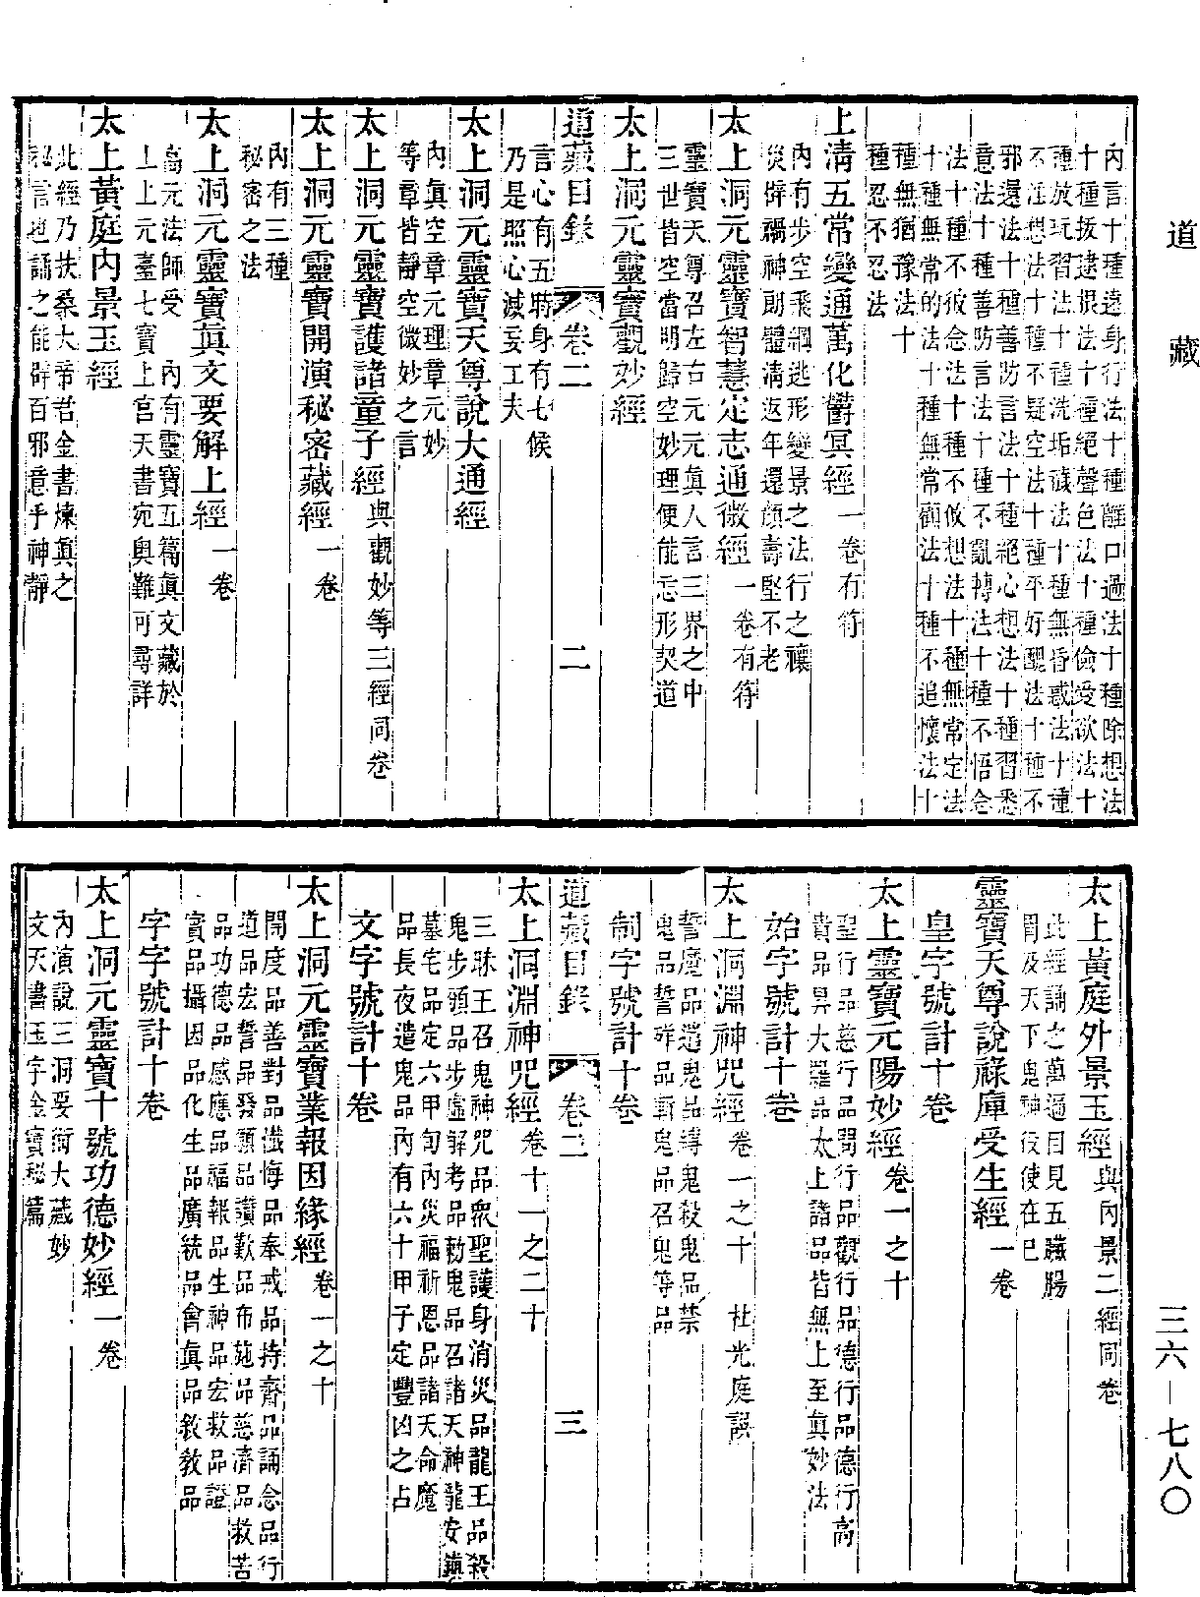 道藏
內言十種遠身行法十種離口過法十種除想法
十種拔逮根法十種絕聲色法十種儉受欲法十
種放玩習法十種洗垢穢法十種無昏惑法十種
不淫想法十種不疑空法十種平好醜法十種不
邪還法十種善防言法十種絕心想法十種習悉
意法十種善防言法十種不亂轉法十種不悟念
法十種不彼念法十種不攸想法十種無常定法
十種無常的法十種無常觀法十種不追懷法十
種無猶豫法十
種忍不忍法
上淸五常變通萬化鬱冥經一卷有符
內有步空乘綱逃形變景之法行之禳
災辟禍神朗體淸返年還顔壽堅不老
太上洞元靈寶智慧定志通微經一卷有符
靈寶天尊召左右元元眞人言三界之中
三世皆空當明歸空妙理便能忘形契道
太上洞元靈寶觀妙經
道藏目錄 卷二 二
言心有五時身有七候
乃是照心滅妄工夫
太上洞元靈寶天尊說大通經
內眞空章元理章元妙
等章皆靜空微妙之言
太上洞元靈寶護諸童子經與觀妙等三經同卷
太上洞元靈寶開演秘密藏經一卷
內有三種
秘密之法
太上洞元靈寶眞文要解上經一卷
高元法師受 內有靈寶五篇眞文藏於
上上元臺七寶上宮天書宛奧難可尋詳
太上黃庭內景玉經
此經乃扶桑大帝君金書煉眞之
秘言也誦之能辟百邪意乎神靜
太上黃庭外景玉經與內景二經同卷
此經誦之萬遍自見五臟腸
胃及天下鬼神役使在巳
靈寶天尊說祿庫受生經一卷
皇字號計十卷
太上靈寶元陽妙經卷一之十
聖行品慈行品問行品觀行品德行品德行高
貴品昇大羅品太上諸品皆無上至眞妙法
始字號計十卷
太上洞淵神咒經卷一之十 杜光庭譔
誓魔品遣鬼品縛鬼殺鬼品禁
鬼品誓殃品斬鬼品召鬼等品
制字號計十卷
道藏目錄 卷二 三
太上洞淵神咒經卷十一之二十
三昧王召鬼神咒品衆聖護身消災品龍王品殺
鬼步頭品步虛解考品勅鬼品召諸天神龍安鎭
墓宅品定六甲旬內災福祈恩品諸天命魔
品長夜遣鬼品內有六十甲子定豐凶之占
文字號計十卷
太上洞元靈寶業報因緣經卷一之十
開度品善對品懺悔品奉戒品持齋品誦念品行
道品宏誓品發願品讚歎品布施品慈濟品救苦
品功德品感應品福報品生神品宏救品證
實品攝因品化生品廣統品會眞品敘教品
字字號計十卷
太上洞元靈寶十號功德妙經一卷
內演說三洞要術大藏妙
文天書玉字金寶秘篇
三六—七八〇